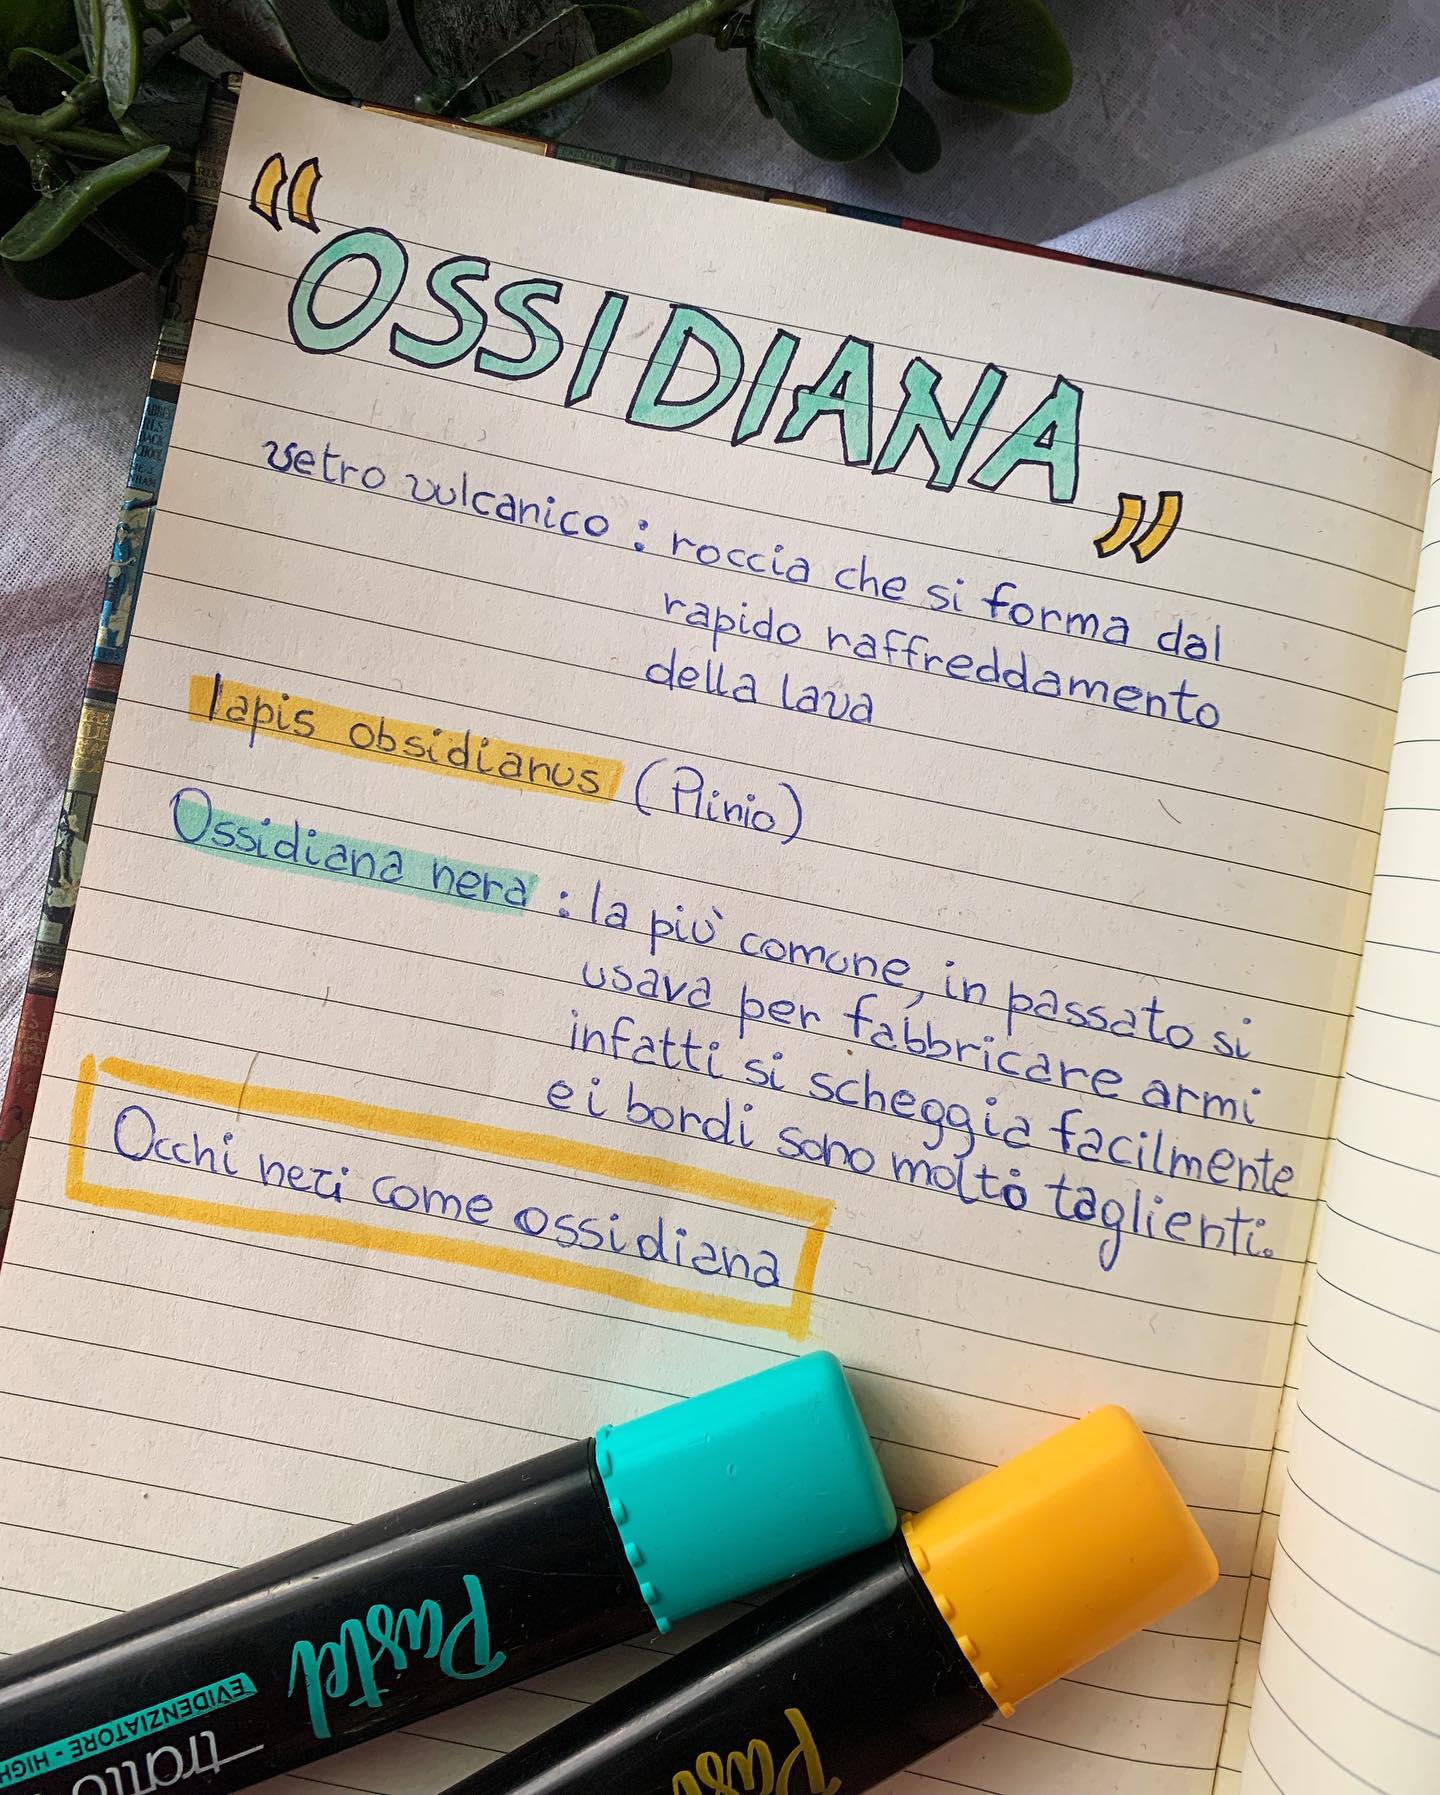 “OSSIDIANA”
vetro vulcanico : roccia che si forma dal
rapido raffreddamento
della lava
lapis obsidianus (Plinio)
Ossidiana nera : la più comune, in passato si
usava per fabbricare armi
infatti si scheggia facilmente
e i bordi sono molto taglienti.
Occhi neri come ossidiana
Pastel
EVIDENZIATORE - HIGH
tratto
Pas